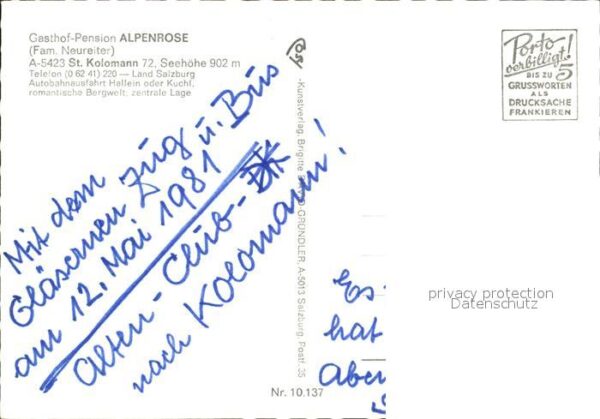 Gasthof-Pension ALPENROSE
(Fam. Neureiter)
A-5423 St. Kolomann 72, Seehöhe 902 m
Telefon (0 62 41) 220 — Land Salzburg
Autobahnausfahrt Hallein oder Kuchl,
romantische Bergwelt, zentrale Lage
Mit dem
Gläsernen Zug u. Bus
am 12. Mai 1981
Alten-Club-
nach Kolomann!
Kunstverlag, Brigitte GRÜNDLER, A-5013 Salzburg, Postf. 35
Nr. 10.137
Porto
verbilligt!
BIS ZU 5
GRUSSWORTEN
ALS
DRUCKSACHE
FRANKIEREN
Es
hat
Aber
privacy protection
Datenschutz